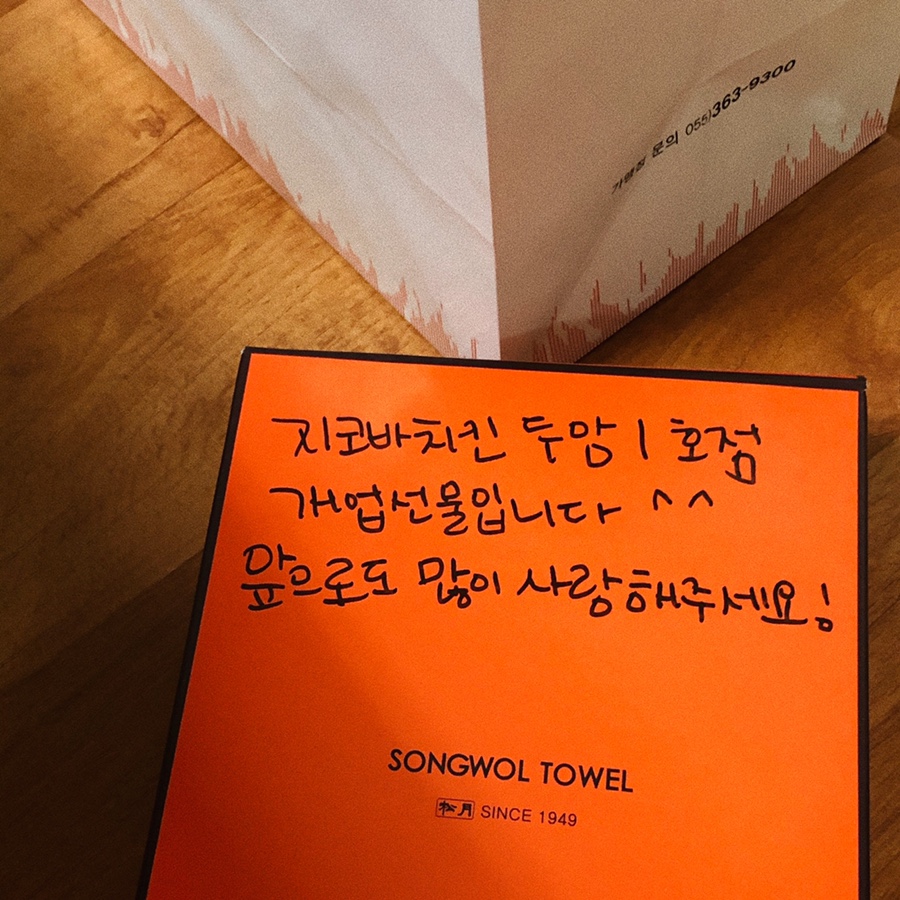 가맹점 문의 055)363-9300
지코바치킨 두암 1 호점
개업선물입니다 ^^
앞으로도 많이 사랑해주세요!
SONGWOL TOWEL
松月 SINCE 1949